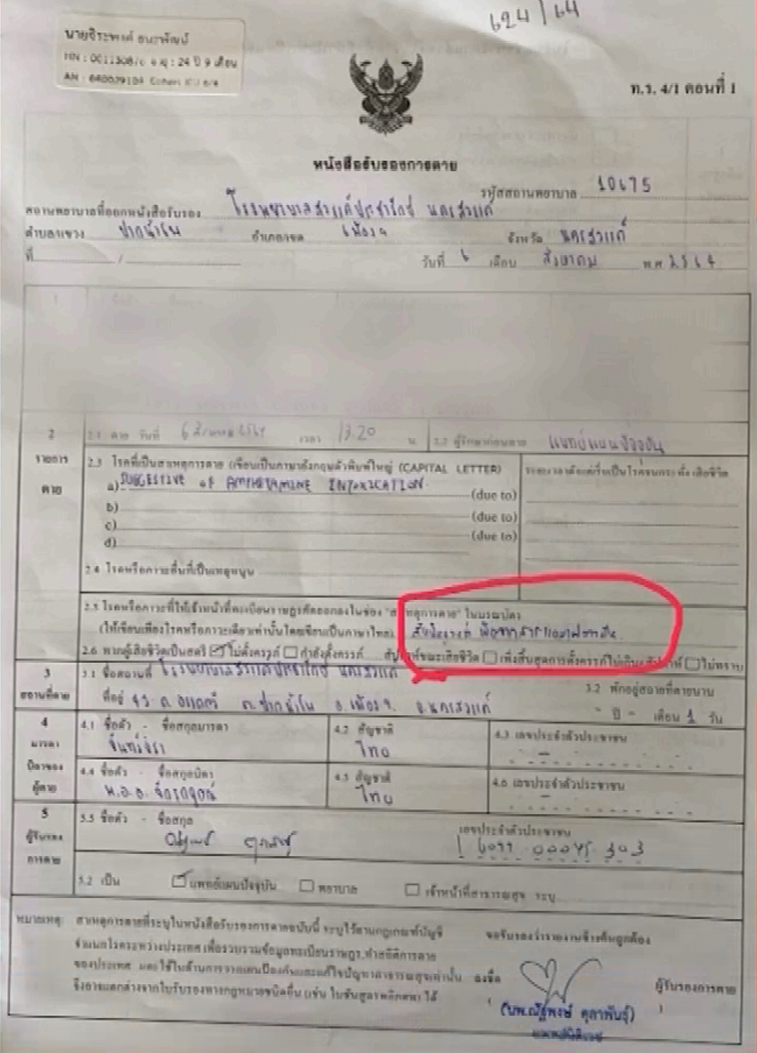 624/64
นายจิระพงศ์ ธนะพัฒน์
อายุ : 24 ปี 9 เดือน
ท.ร. 4/1 ตอนที่ 1
หนังสือรับรองการตาย
รหัสสถานพยาบาล 10675
สถานพยาบาลที่ออกหนังสือรับรอง โรงพยาบาลสวรรค์ประชารักษ์ นครสวรรค์
ตำบล/แขวง ปากน้ำโพ อำเภอ/เขต เมืองฯ จังหวัด นครสวรรค์
ที่ / วันที่ 6 เดือน สิงหาคม พ.ศ. 2564
1
2 2.1 ตาย วันที่ 6 สิงหาคม 2564 เวลา 13.20 น. 2.2 ผู้รักษาก่อนตาย แพทย์แผนปัจจุบัน
รายการ
ตาย
2.3 โรคที่เป็นสาเหตุการตาย (เขียนเป็นภาษาอังกฤษตัวพิมพ์ใหญ่ (CAPITAL LETTER)
a) SUGGESTIVE OF AMPHETAMINE INTOXICATION (due to)
b) (due to)
c) (due to)
d)
2.4 โรคหรือภาวะอื่นที่เป็นเหตุหนุน
2.5 โรคหรือภาวะที่ให้เจ้าหน้าที่ทะเบียนราษฎรคัดลอกลงในช่อง "สาเหตุการตาย" ในมรณบัตร
(ให้เขียนเพียงโรคหรือภาวะเดียวเท่านั้นโดยเขียนเป็นภาษาไทย) สันนิษฐานว่า พิษจากสารแอมเฟตามีน
2.6 หากผู้เสียชีวิตเป็นสตรี ไม่ตั้งครรภ์ กำลังตั้งครรภ์ สัปดาห์ขณะเสียชีวิต เพิ่งสิ้นสุดการตั้งครรภ์ไม่เกิน สัปดาห์ ไม่ทราบ
3 3.1 ชื่อสถานที่ โรงพยาบาลสวรรค์ประชารักษ์ นครสวรรค์
สถานที่ตาย ที่อยู่ 43 ถ.อรรถกวี ต.ปากน้ำโพ อ.เมืองฯ จ.นครสวรรค์
3.2 พักอยู่สถานที่ตายนาน
- ปี - เดือน 1 วัน
4 4.1 ชื่อตัว - ชื่อสกุลมารดา 4.2 สัญชาติ 4.3 เลขประจำตัวประชาชน
มารดา จันทร์จิรา ไทย -
บิดาของ 4.4 ชื่อตัว - ชื่อสกุลบิดา 4.5 สัญชาติ 4.6 เลขประจำตัวประชาชน
ผู้ตาย ไทย
5 5.1 ชื่อตัว - ชื่อสกุล เลขประจำตัวประชาชน
ผู้รับรอง
การตาย
5.2 เป็น แพทย์แผนปัจจุบัน พยาบาล เจ้าหน้าที่สาธารณสุข ระบุ
หมายเหตุ สาเหตุการตายที่ระบุในหนังสือรับรองการตายฉบับนี้ ระบุไว้ตามกฎเกณฑ์บัญชี
จำแนกโรคระหว่างประเทศ เพื่อรวบรวมข้อมูลทะเบียนราษฎร ทำสถิติการตาย
ของประเทศ และใช้ในด้านการวางแผนป้องกันและแก้ไขปัญหาสาธารณสุขเท่านั้น
ซึ่งอาจแตกต่างจากใบรับรองทางกฎหมายชนิดอื่น (เช่น ใบชันสูตรพลิกศพ) ได้
ขอรับรองว่ารายงานข้างต้นถูกต้อง
ลงชื่อ ผู้รับรองการตาย
(นพ.ณัฐพงษ์ ตุลาพันธุ์)